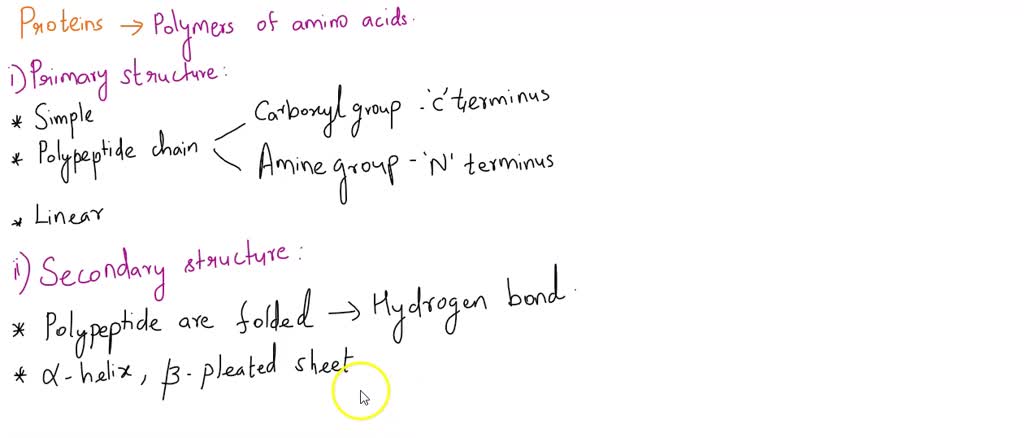 Proteins → Polymers of amino acids.
i) Primary structure:
* Simple
* Polypeptide chain
Carboxyl group - 'c' terminus
Amine group - 'N' terminus
* Linear
ii) Secondary structure:
* Polypeptide are folded → Hydrogen bond.
* α-helix, β-pleated sheet